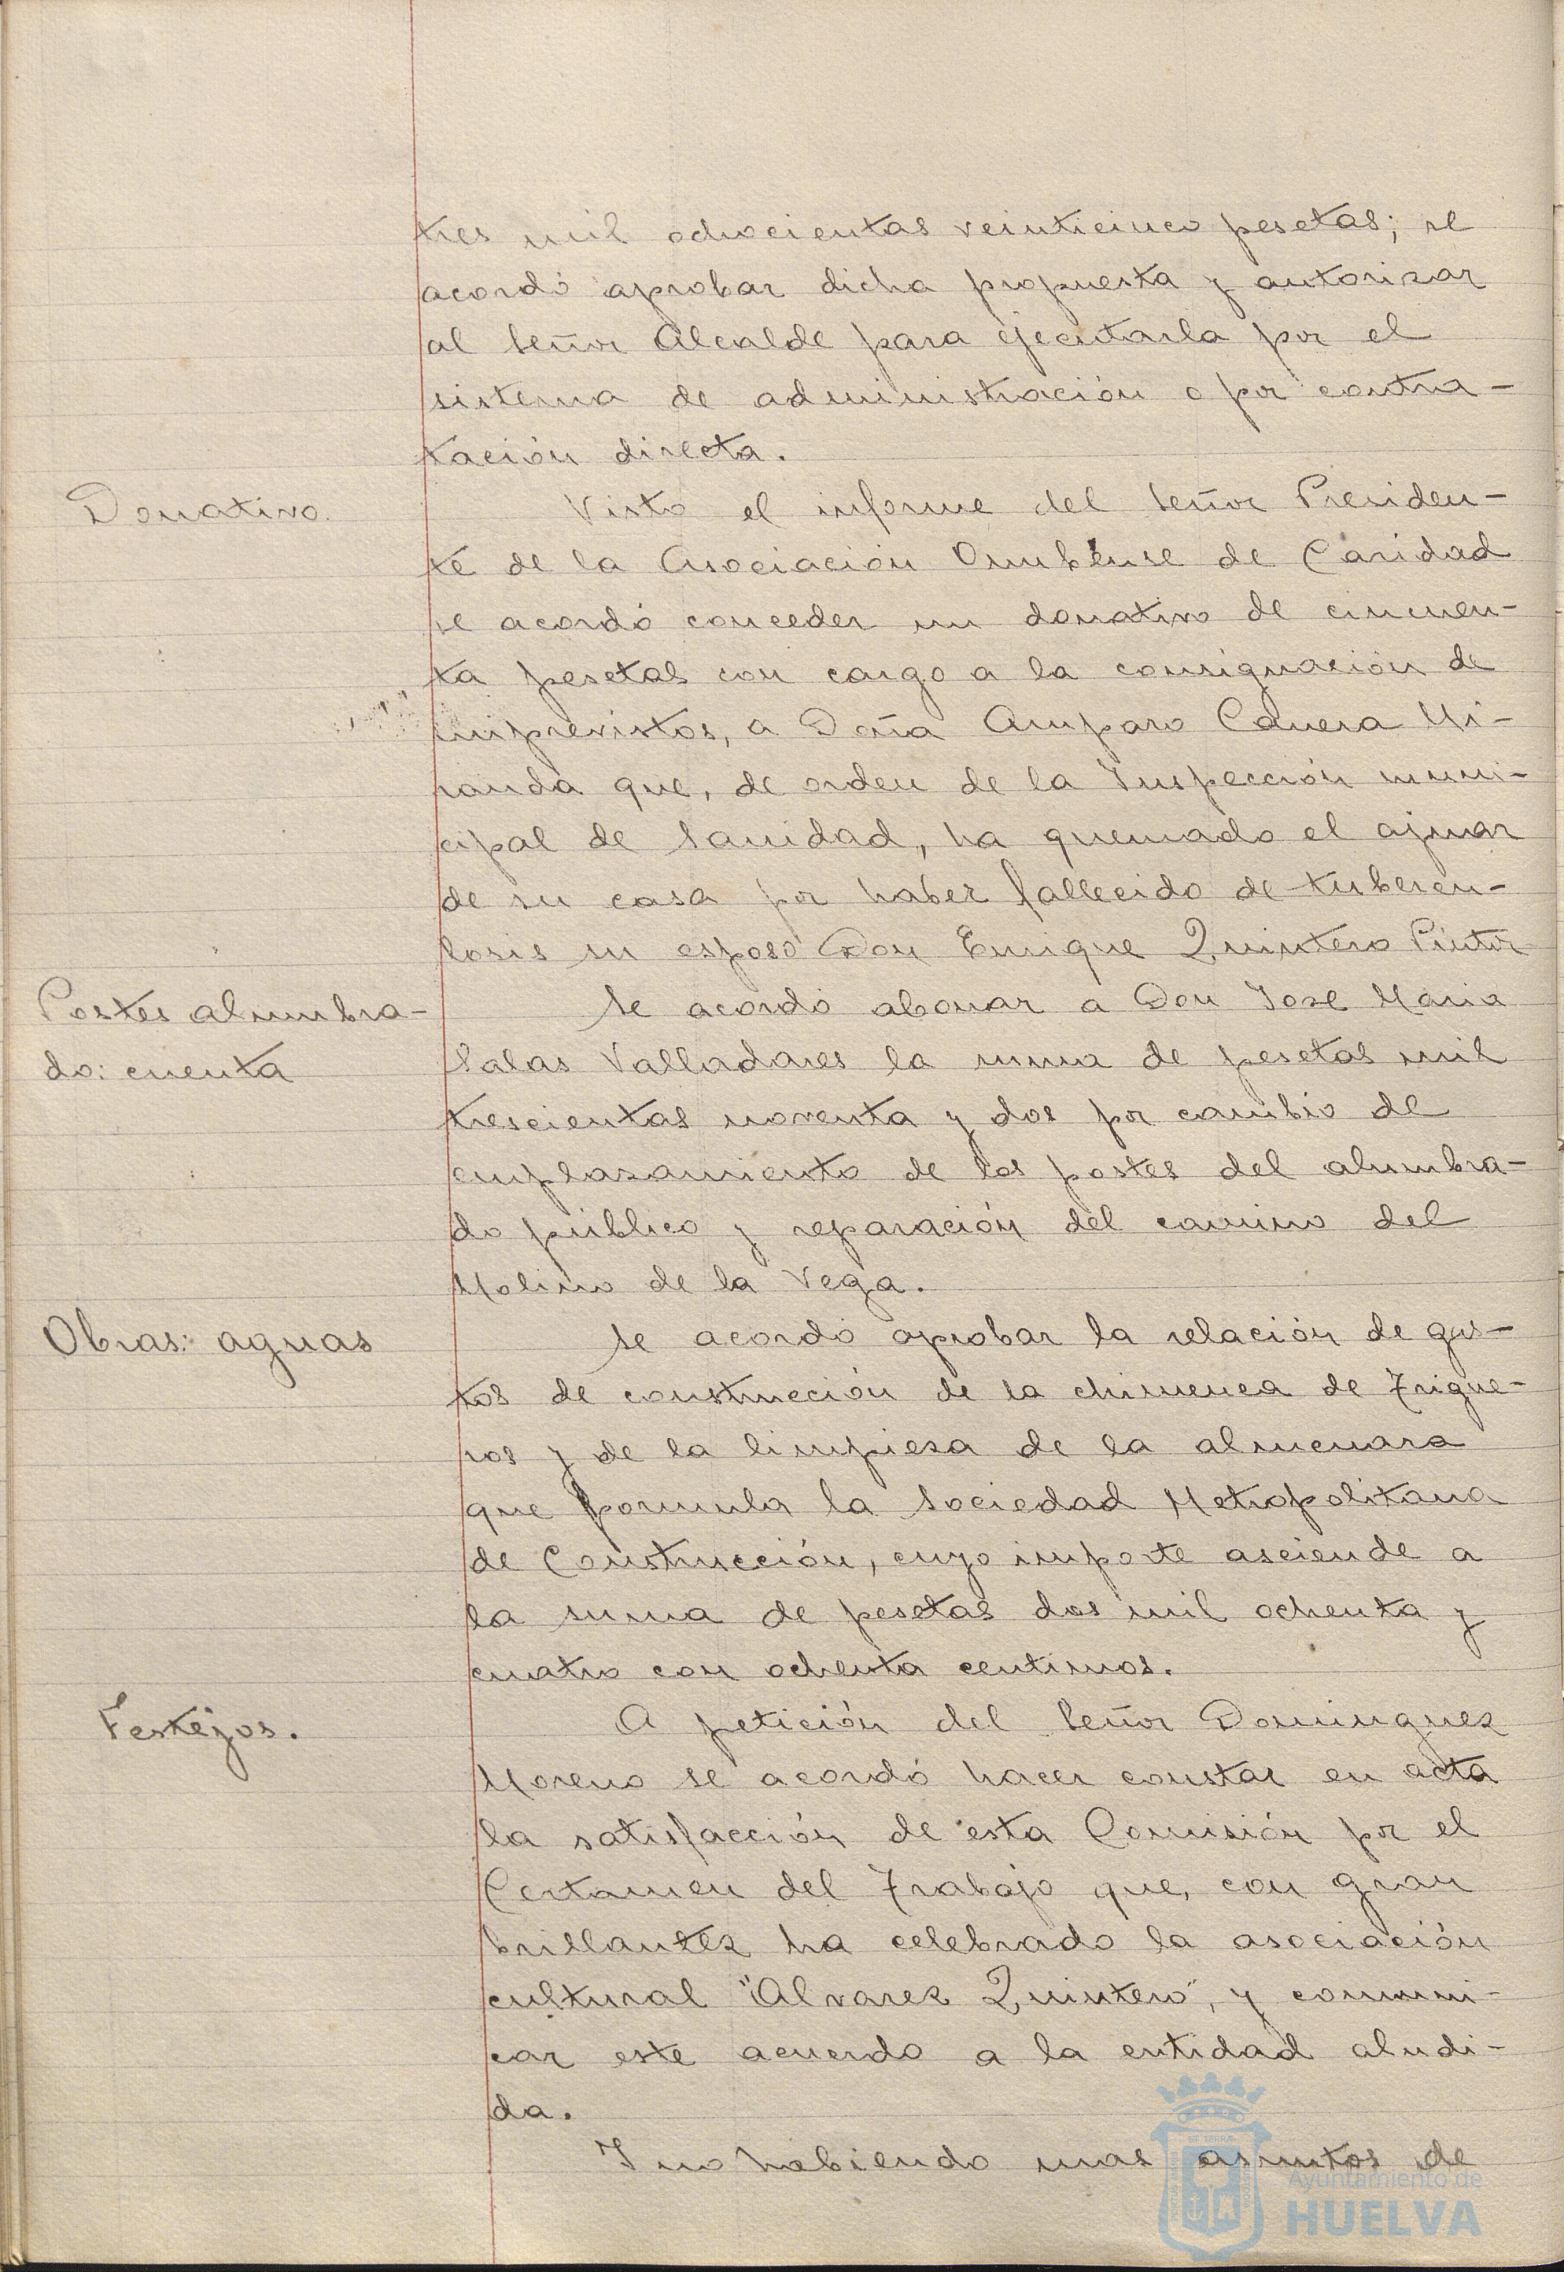 tres mil ochocientas veinticinco pesetas; se
acordó aprobar dicha propuesta y autorizar
al Señor Alcalde para ejecutarla por el
sistema de administración o por contra-
tación directa.
Donativo.
Visto el informe del Señor Presiden-
te de la Asociación Onubense de Caridad
se acordó conceder un donativo de cincuen-
ta pesetas con cargo a la consignación de
imprevistos, a Doña Amparo Mi-
randa que, de orden de la Inspección muni-
cipal de Sanidad, ha quemado el ajuar
de su casa por haber fallecido de tubercu-
losis su esposo Don Enrique Quintero Pintor
Postes alumbra-
do: cuenta
Se acordó abonar a Don Jose Maria
Salas Valladares la suma de pesetas mil
trescientas noventa y dos por cambio de
emplazamiento de los postes del alumbra-
do público y reparación del camino del
Molino de la Vega.
Obras: aguas
Se acordó aprobar la relación de gas-
tos de construcción de la chimenea de Trigue-
ros y de la limpieza de la almenara
que formula la Sociedad Metropolitana
de Construcción, cuyo importe asciende a
la suma de pesetas dos mil ochenta y
cuatro con ochenta centimos.
Festejos.
A petición del Señor Dominguez
Moreno se acordó hacer constar en acta
la satisfacción de esta Comisión por el
Certamen del Trabajo que, con gran
brillantez ha celebrado la asociación
cultural "Alvarez Quintero", y comuni-
car este acuerdo a la entidad aludi-
da.
Y no habiendo mas asuntos de
Ayuntamiento de
HUELVA